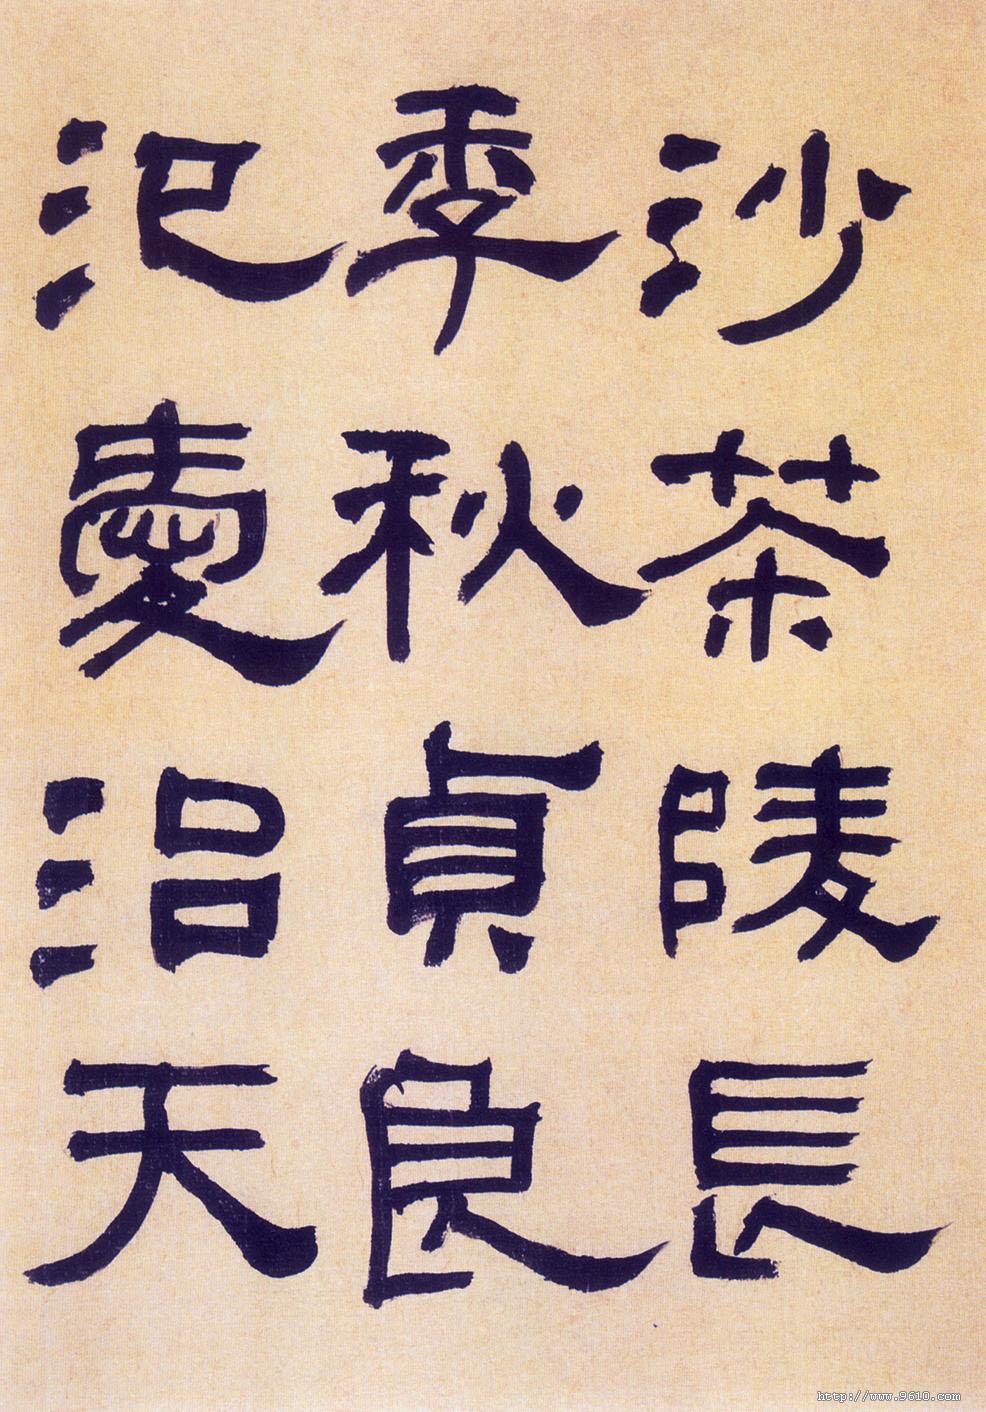 沙茶陵長
季秋貞良
汜愛沼天
http://www.9610.com